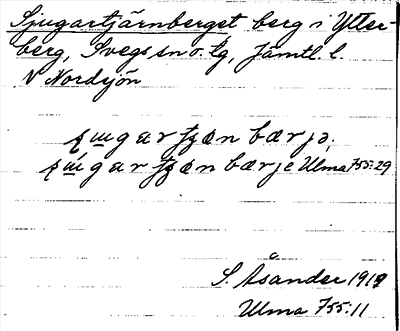 Sjugartjärnberget berg i Ytter-
berg, Svegs sn o. tg, Jämtl. l.
V Nordsjön
gargtjænbærjə,
gargtjænbærje Ulma 755:29
S. Åsander 1919
Ulma 755:11